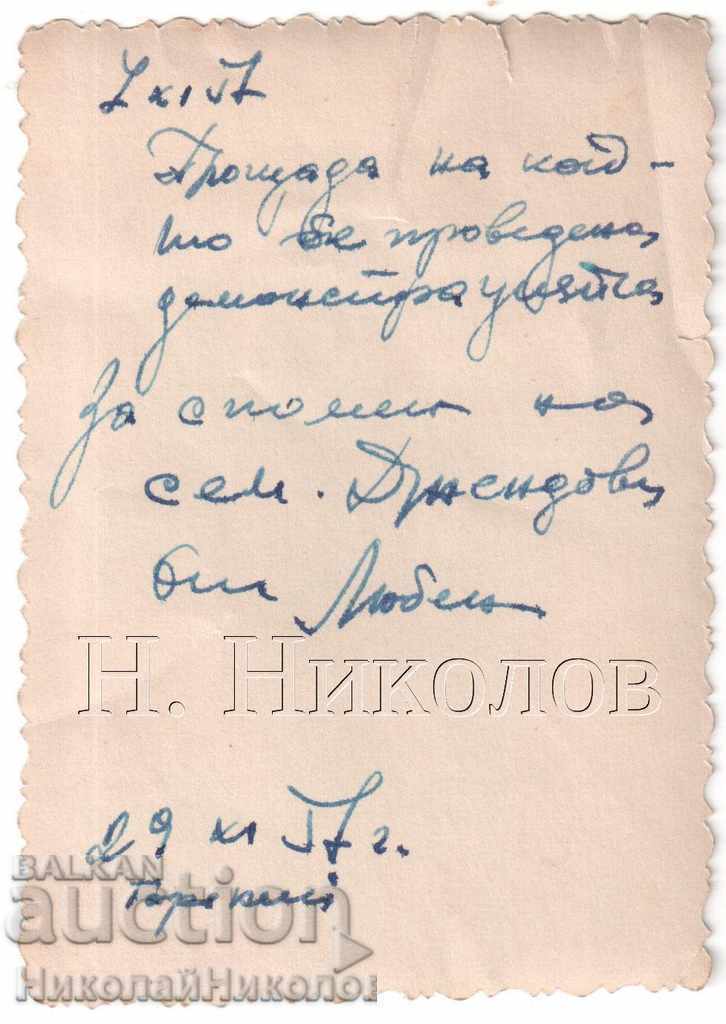 7 XI 57
Прощада на кой-
то бе проведена
демонстрацията
За спомен на
сем. Джендови
от Любен
Н. Николов
29 XI 57 г.
BALKAN
auction
НиколайНиколов